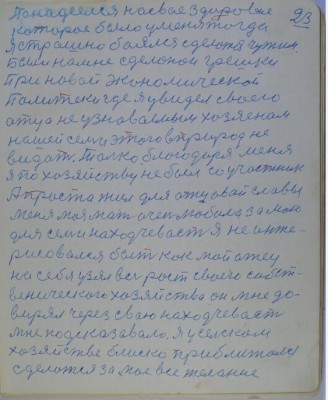 23
Понадеелся на свое здоровже
которое было уменя тогда
я страшно боялся сделат
были на мне сделоной грешки
При новой экономической
Политеки где я увидел своего
отца не узноваемым хозяеном
нашей семи этого в природ не
видат. Толко благодаря меня
я по хозяйству не был соучастник
А проста жил для отцовай славы
меня моя мат очен любила за мою
для семи находчеваст я не инте-
рисовался быт как мой отец
на себя узял вес рост своего собст-
венического хозяйства он мне до-
вирял через сваю находчеваст
мне подсказывало, я уселском
хозяйстве блиско приближался
сделотся за мое все желание